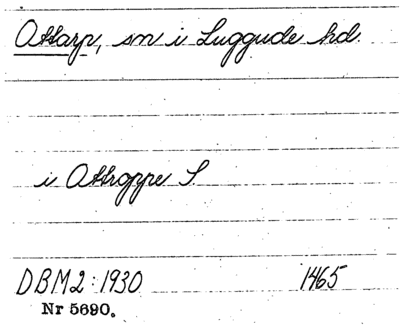 Ottarp, sn i Luggude hd.
i Ottroppe S.
DBM2:1930 1465
Nr 5690.